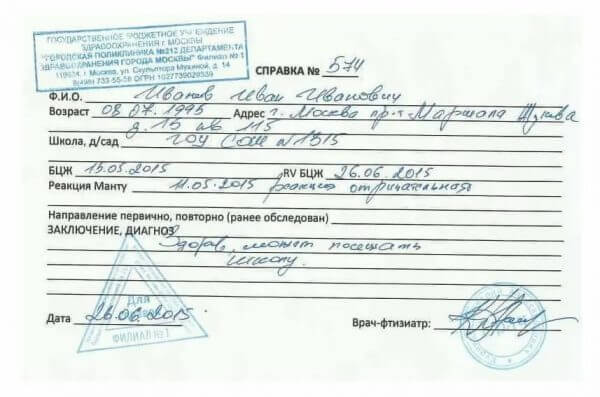 ГОСУДАРСТВЕННОЕ БЮДЖЕТНОЕ УЧРЕЖДЕНИЕ
ЗДРАВООХРАНЕНИЯ г. МОСКВЫ
"ГОРОДСКАЯ ПОЛИКЛИНИКА №212 ДЕПАРТАМЕНТА
ЗДРАВООХРАНЕНИЯ ГОРОДА МОСКВЫ" Филиал № 1
119634, г. Москва, ул. Скульптора Мухиной, д. 14
8(499) 733-55-58 ОГРН 1027739029539
СПРАВКА № 574
Ф.И.О. Иванов Иван Иванович
Возраст 08.07.1995 Адрес г. Москва пр-т Маршала Жукова
д. 15 кв 115
Школа, д/сад ГОУ СОШ N 1515
БЦЖ 15.05.2015 RV БЦЖ 26.06.2015
Реакция Манту 11.05.2015 реакция отрицательная
Направление первично, повторно (ранее обследован)
ЗАКЛЮЧЕНИЕ, ДИАГНОЗ
Здоров, может посещать
школу.
Для
Дата 26.06.2015 Врач-фтизиатр:
ФИЛИАЛ № 1